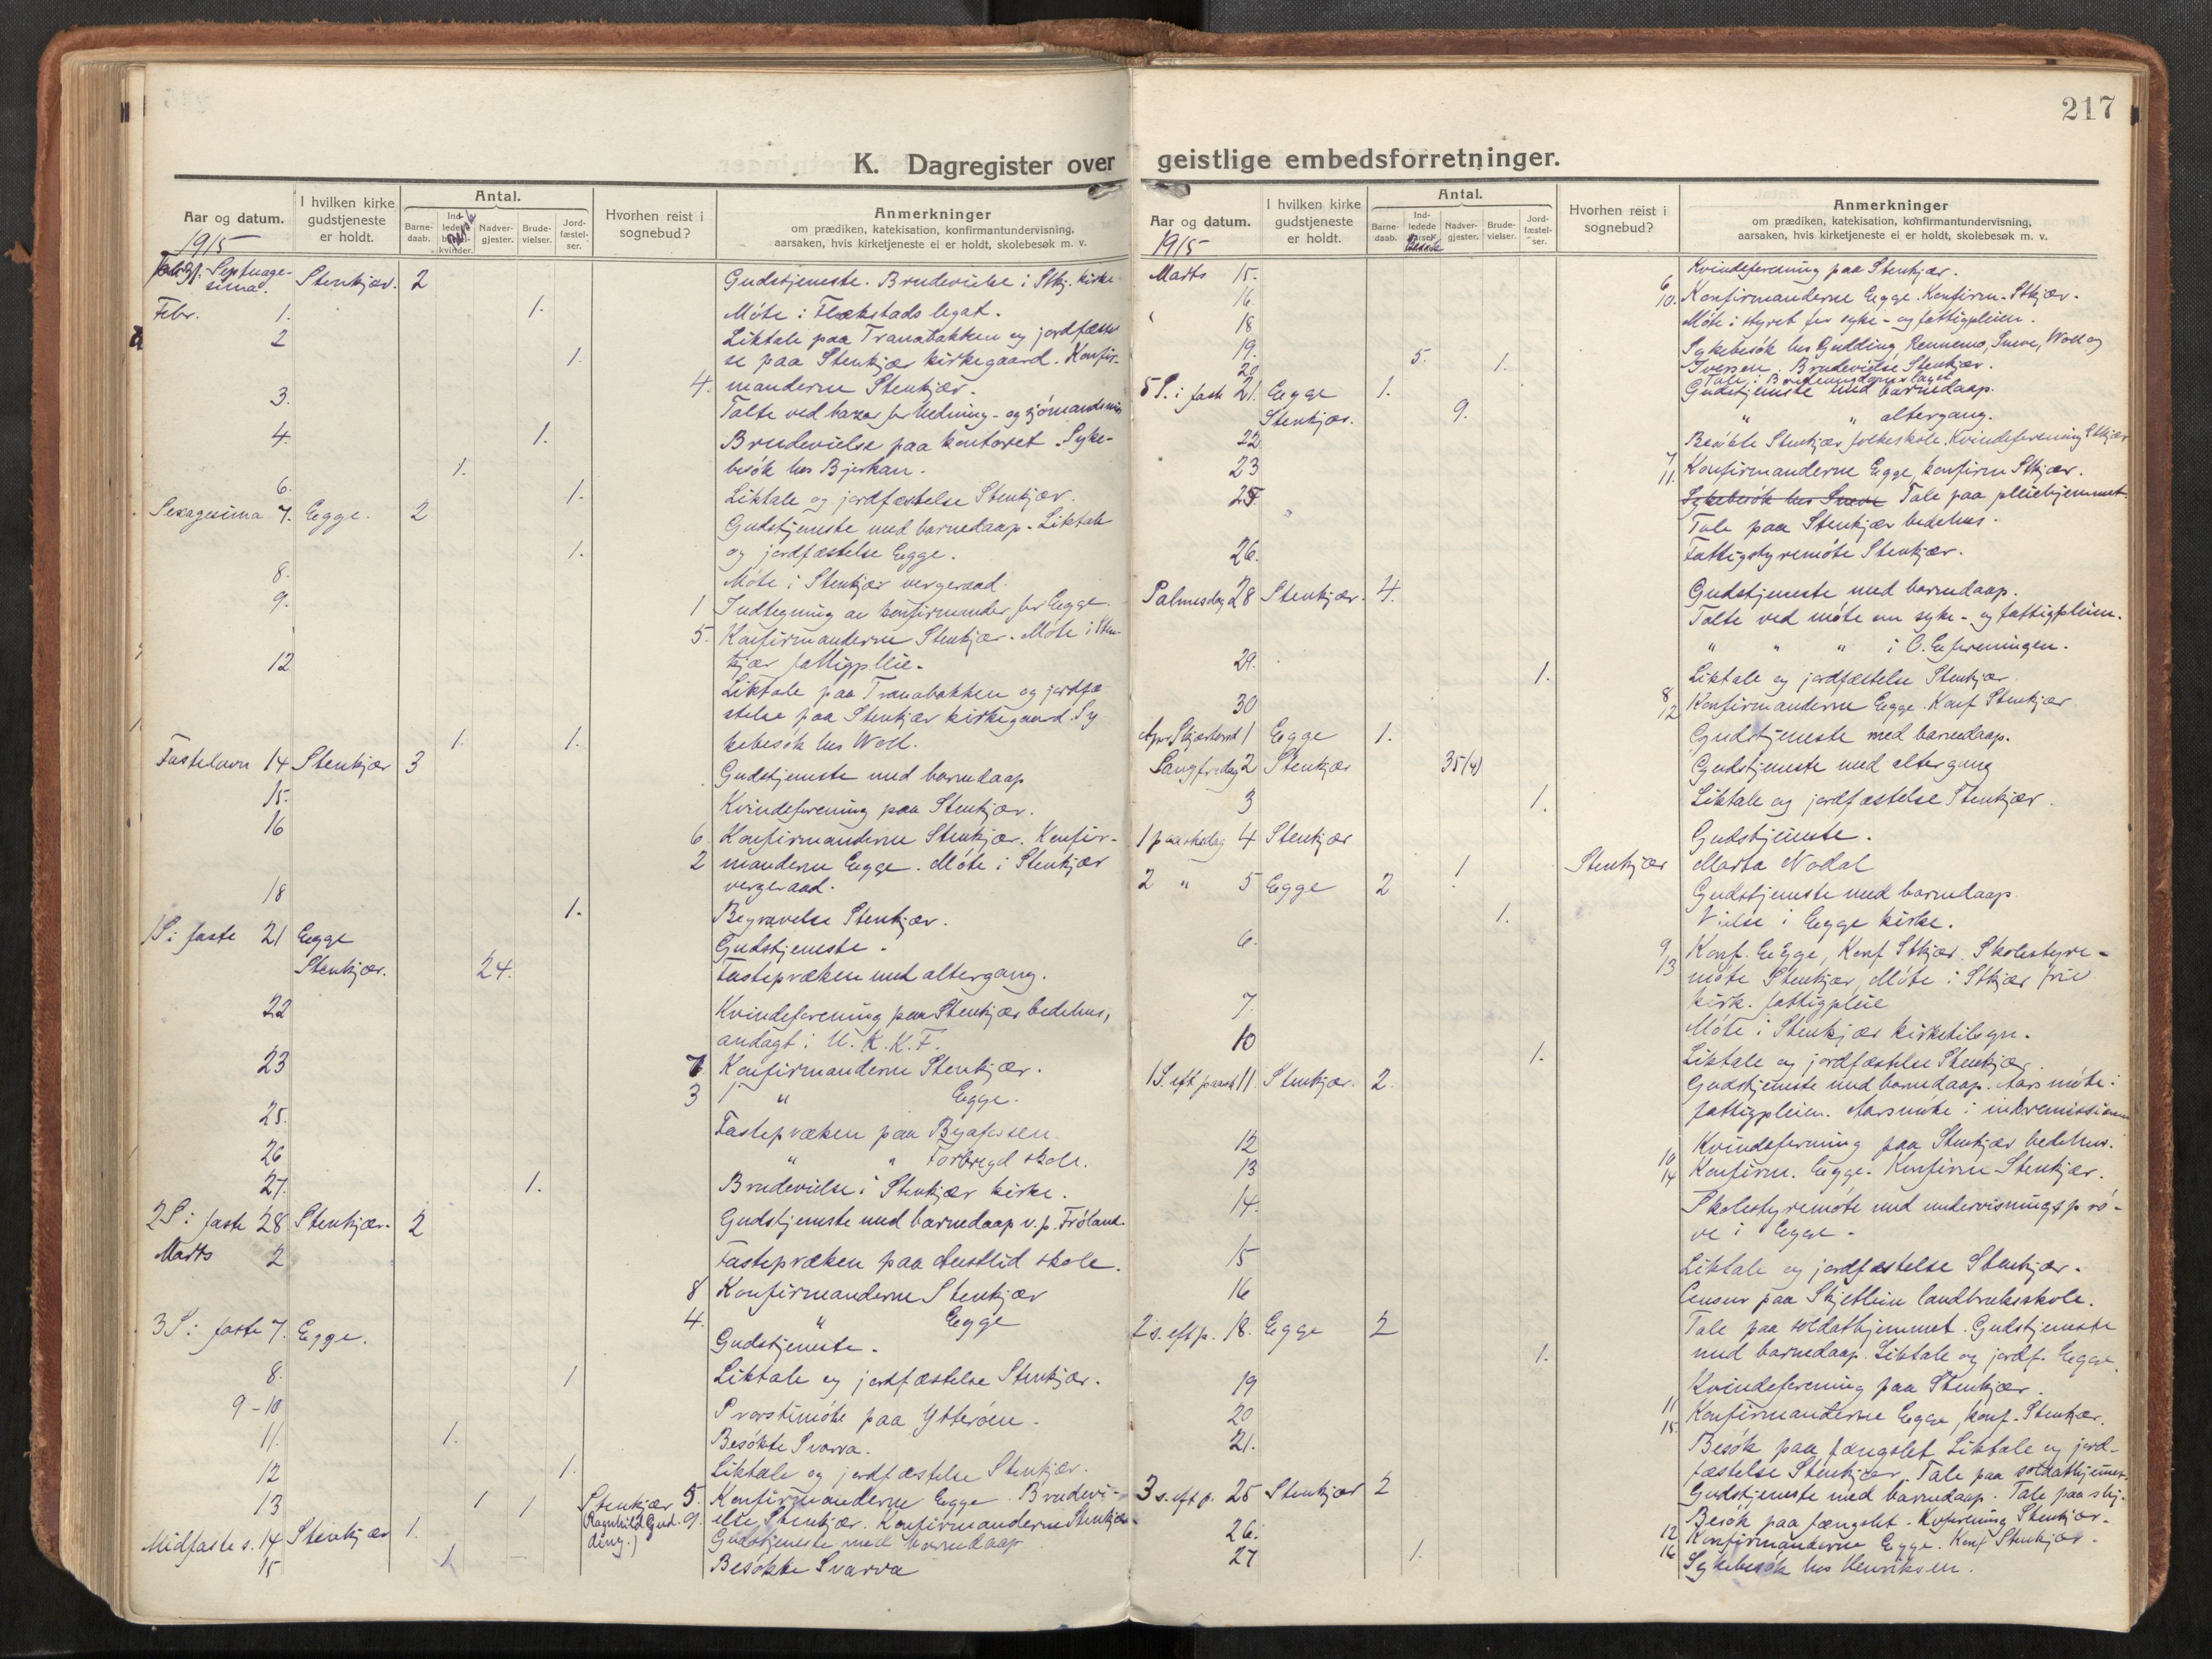 217
K. Dagregister over geistlige embedsforretninger.
Aar og datum.
1915
I hvilken kirke gudstjeneste er holdt.
Antal.
Barne-daab.
Nadver-gjester.
Brude-vielser.
Jord-fæstel-ser.
Hvorhen reist i sognebud?
Anmerkninger
om prædiken, katekisation, konfirmantundervisning,
aarsaken, hvis kirketjeneste ei er holdt, skolebesøk m. v.
31. Septuagesima. Stenkjær. 2 Gudstjeneste. Brudevielse i Stkj. kirke
Febr. 1. 1. Møte i Flekstads legat.
2 Liktale paa Tranabakken og jordfæstel
1. se paa Stenkjær kirkegaard. Konfir-
4. manderne Stenkjær.
3. Talte ved bazar for hedning- og sjømandsmis
4. 1. Brudevielse paa kontoret. Syke-
1. besøk hos Bjerkan.
6. 1. Liktale og jordfæstelse Stenkjær.
Sexagesima 7. Egge. 2 Gudstjeneste med barnedaap. Liktale
1. og jordfæstelse Egge.
8. Møte i Stenkjær vergeraad.
9. 1 Indtegning av konfirmander for Egge.
5. Konfirmanderne Stenkjær. Møte i Sten-
12 kjær fattigpleie.
Liktale paa Tranabakken og jordfæ
stelse paa Stenkjær kirkegaard. Sy
1. 1. kebesøk hos Woll.
Fastelavn 14 Stenkjær 3 Gudstjeneste med barnedaap
15. Kvindeforening paa Stenkjær.
16 6. Konfirmanderne Stenkjær. Konfir-
2 manderne Egge. Møte i Stenkjær
18 vergeraad.
1. Begravelse Stenkjær.
1 S. i faste 21 Egge Gudstjeneste.
Stenkjær. 24. Fastepræken med altergang.
22 Kvindeforening paa Stenkjær bedehus,
andagt i U. K. K. F.
23 7 Konfirmanderne Stenkjær.
3 " Egge.
25. Fastepræken paa Byafossen.
26 " " Forbregd skole.
27. 1. Brudevielse i Stenkjær kirke.
2 S. i faste 28 Stenkjær. 2 Gudstjeneste med barnedaap v. p. Frøland.
Marts 2 Fastepræken paa Austlid skole.
8 Konfirmanderne Stenkjær
4. " Egge
3 S. i faste 7. Egge. Gudstjeneste.
8. 1 Liktale og jordfæstelse Stenkjær.
9-10 Prostimøte paa Ytterøen.
11. 1. Besøkte Svarva.
12 1. Liktale og jordfæstelse Stenkjær.
13 1 1 Stenkjær 5. Konfirmanderne Egge. Brudevi-
(Ragnhild Gud- 9. else Stenkjær. Konfirmanderne Stenkjær
Midfaste s. 14 Stenkjær 1. ding.) Gudstjeneste med barnedaap
15 1. Besøkte Svarva
Aar og datum.
1915
I hvilken kirke gudstjeneste er holdt.
Antal.
Barne-daab.
Nadver-gjester.
Brude-vielser.
Jord-fæstel-ser.
Hvorhen reist i sognebud?
Anmerkninger
om prædiken, katekisation, konfirmantundervisning,
aarsaken, hvis kirketjeneste ei er holdt, skolebesøk m. v.
Marts 15. Kvindeforening paa Stenkjær.
16. 6 10. Konfirmanderne Egge. Konfirm. Stkjær.
" 18 Møte i styret for syke- og fattigpleien.
19. 5. Sykebesøk hos Gudding, Rennemo, Sneve, Woll og
20 1. Iversen. Brudevielse Stenkjær.
5 S. i faste 21. Egge 1. Gudstjeneste med barnedaap.
Stenkjær. 9. " " altergang.
22 Besøkte Stenkjær folkeskole. Kvindeforening Stkjær
23 7 11. Konfirmanderne Egge, konfirm Stkjær.
25 Sykebesøk hos Sneve Tale paa pleiehjemmet.
Tale paa Stenkjær bedehus.
26. Fattigstyremøte Stenkjær.
Palmesdag 28 Stenkjær. 4. Gudstjeneste med barnedaap.
Talte ved møte om syke- og fattigpleien.
" " " i foreningen.
29. 1. Liktale og jordfæstelse Stenkjær
30 8 12 Konfirmanderne Egge. Konf Stenkjær
Apr. Skjærtorsd 1 Egge 1. Gudstjeneste med barnedaap.
Langfredag 2 Stenkjær 35(4) Gudstjeneste med altergang
3 1. Liktale og jordfæstelse Stenkjær.
1 paaskedag 4 Stenkjær Gudstjeneste.
1 Stenkjær Marta Nodal
2 " 5 Egge 2 Gudstjeneste med barnedaap.
1. Vielse i Egge kirke.
6. 9 13 Konf. Egge, Konf Stkjær. Skolestyre-
møte Stenkjær, Møte i Stkjær friv
7. kirk. fattigpleie
Møte i Stenkjær kirketilsyn.
10 1. Liktale og jordfæstelse Stenkjær.
1 S. eft paaske 11. Stenkjær. 2. Gudstjeneste med barnedaap. Aarsmøte i
fattigpleien. Aarsmøte i indremissionen
12 Kvindeforening paa Stenkjær bedehus.
13 10 14 Konfirm. Egge. Konfirm Stenkjær.
14. Skolestyremøte med undervisningsprø-
ve i Egge.
15 Liktale og jordfæstelse Stenkjær.
16 Censur paa Skjetlein landbruksskole.
2 s. eft p. 18. Egge 2 Tale paa soldathjemmet. Gudstjeneste
1. med barnedaap. Liktale og jordf. Egge.
19 Kvindeforening paa Stenkjær.
20 11 15. Konfirmanderne Egge, konf. Stenkjær.
21. Besøk paa fængslet. Liktale og jord-
fæstelse Stenkjær. Tale paa soldathjemmet.
3 s. eft p. 25 Stenkjær 2 Gudstjeneste med barnedaap. Tale paa
Besøk paa fængslet. Kvforening Stenkjær.
26. 12 16 Konfirmanderne Egge. Konf Stenkjær.
27 1. Sykebesøk hos Henriksen.